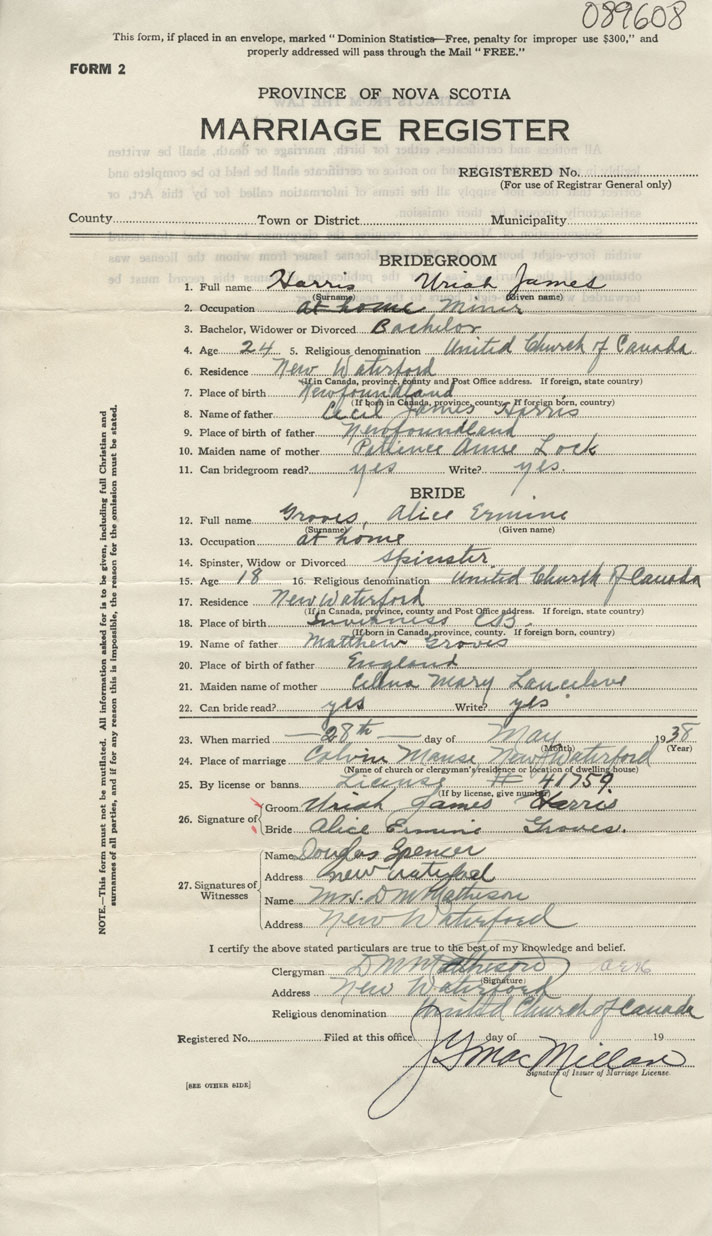 089608
This form, if placed in an envelope, marked "Dominion Statistics—Free, penalty for improper use $300," and
properly addressed will pass through the Mail "FREE."
FORM 2
PROVINCE OF NOVA SCOTIA
MARRIAGE REGISTER
REGISTERED No.
(For use of Registrar General only)
County Town or District Municipality
BRIDEGROOM
1. Full name Harris Uriah James
(Surname) (Given name)
2. Occupation at home Miner
3. Bachelor, Widower or Divorced Bachelor
4. Age 24 5. Religious denomination United Church of Canada
6. Residence New Waterford
(If in Canada, province, county and Post Office address. If foreign, state country)
7. Place of birth Newfoundland
(If born in Canada, province, county. If foreign born, country)
8. Name of father Cecil James Harris
9. Place of birth of father Newfoundland
10. Maiden name of mother Patience Anne Lock
11. Can bridegroom read? yes Write? yes.
BRIDE
12. Full name Groves, Alice Ermine
(Surname) (Given name)
13. Occupation at home
14. Spinster, Widow or Divorced Spinster
15. Age 18 16. Religious denomination United Church of Canada
17. Residence New Waterford
(If in Canada, province, county and Post Office address. If foreign, state country)
18. Place of birth Inverness CB.
(If born in Canada, province, county. If foreign born, country)
19. Name of father Matthew Groves
20. Place of birth of father England
21. Maiden name of mother Mary
22. Can bride read? yes Write? yes
23. When married 28th day of May 1938
(Month) (Year)
24. Place of marriage Calvin Manse New Waterford
(Name of church or clergyman's residence or location of dwelling house)
25. By license or banns License # 41759
(If by license, give number)
26. Signature of Groom Uriah James Harris
Bride Alice Ermine Groves.
27. Signatures of Witnesses
Name Douglas Spencer
Address New Waterford
Name Mrs. D M Mathison
Address New Waterford
I certify the above stated particulars are true to the best of my knowledge and belief.
Clergyman D M Mathison
(Signature)
Address New Waterford
Religious denomination United Church of Canada
Registered No. Filed at this office day of 19
J Y MacMillan
Signature of Issuer of Marriage License.
[SEE OTHER SIDE]
NOTE.—This form must not be mutilated. All information asked for is to be given, including full Christian and
surnames of all parties, and if for any reason this is impossible, the reason for the omission must be stated.